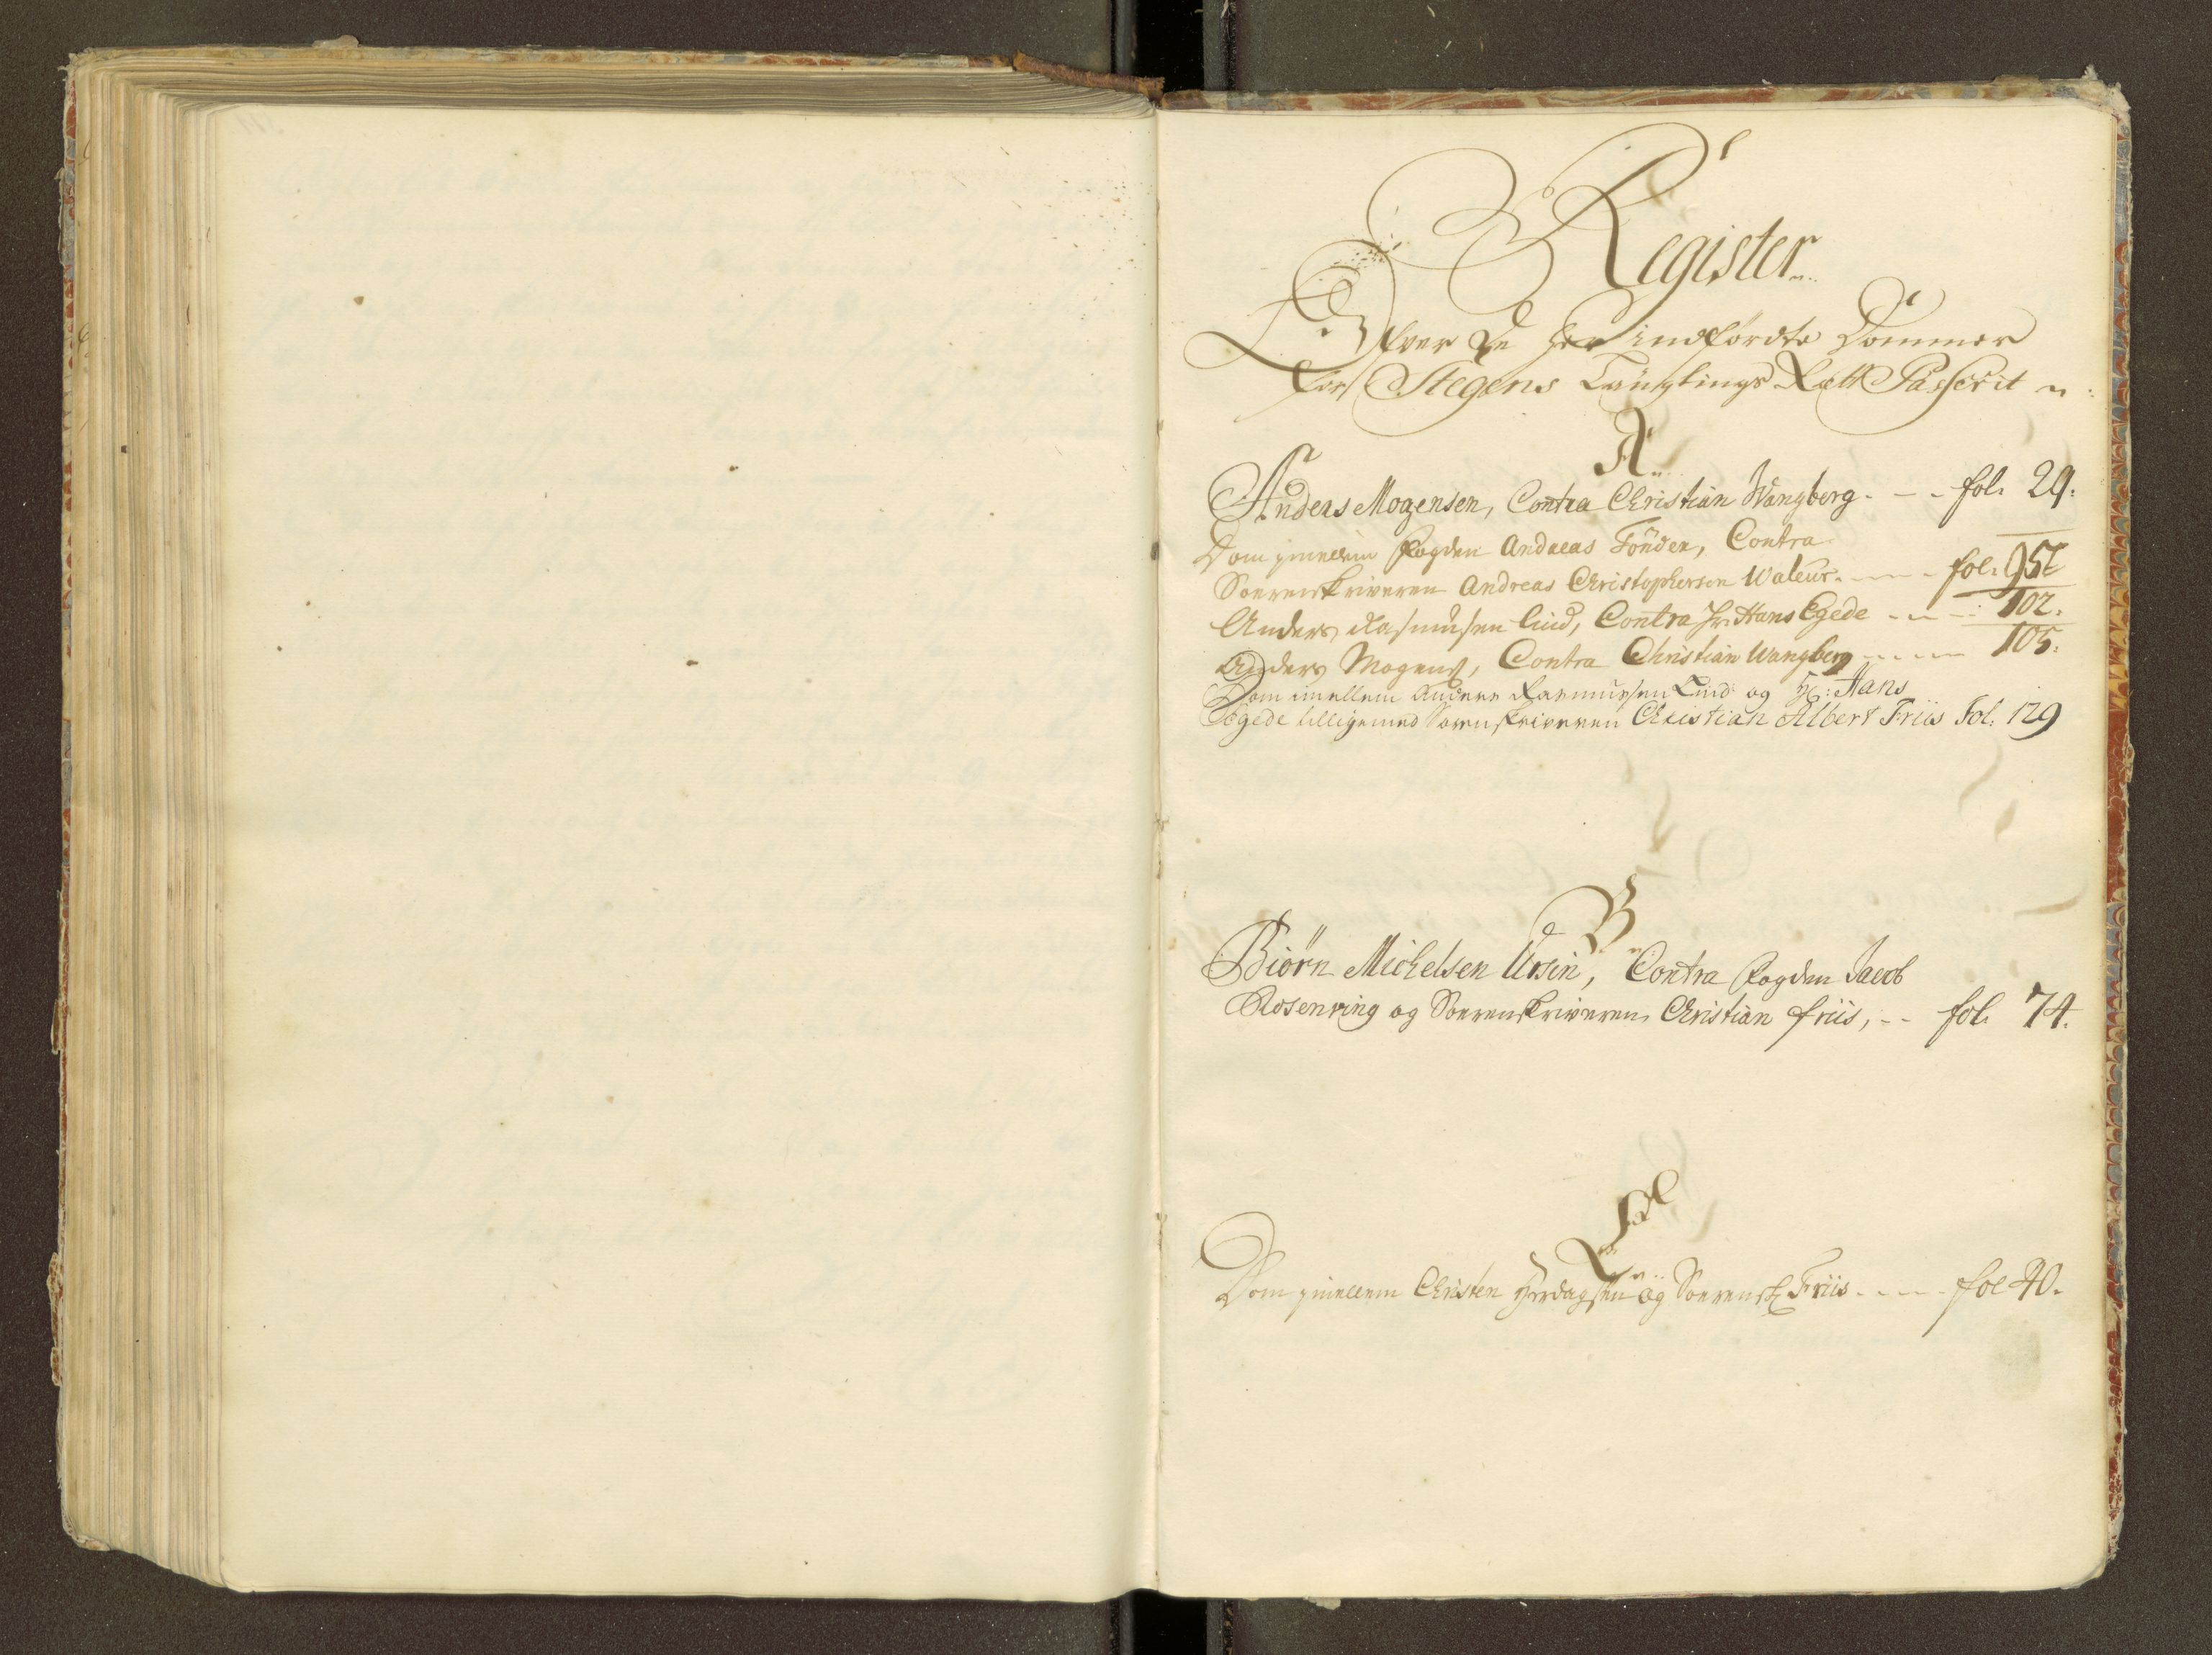 Register
Ofver De her indførdte Dommer
for Stegens Laugtings Rett Passerit
A
Anders Mogensen, Contra Christian Wangberg - - - fol. 29.
Dom imellem Fogden Andreas Tönder, Contra
Sorenskriveren Andreas Christopherson Waleur - - - fol.
Anders Rasmusen Lind, Contra Hr. Hans Egede - - - 102.
Anders Mogens, Contra Christian Wangberg - - - 105.
Dom imellem Anders Rasmusen Lind og Hr: Hans
Egede tilligemed Sorenskriveren Christian Albert Friis Fol. 129
B
Biørn Michelsen Ursin, Contra Fogden Jacob
Rosenving og Sorenskriveren Christian friis, - - fol. 74.
C
Dom imellem Christen og Sorensk Friis - - - fol 40.